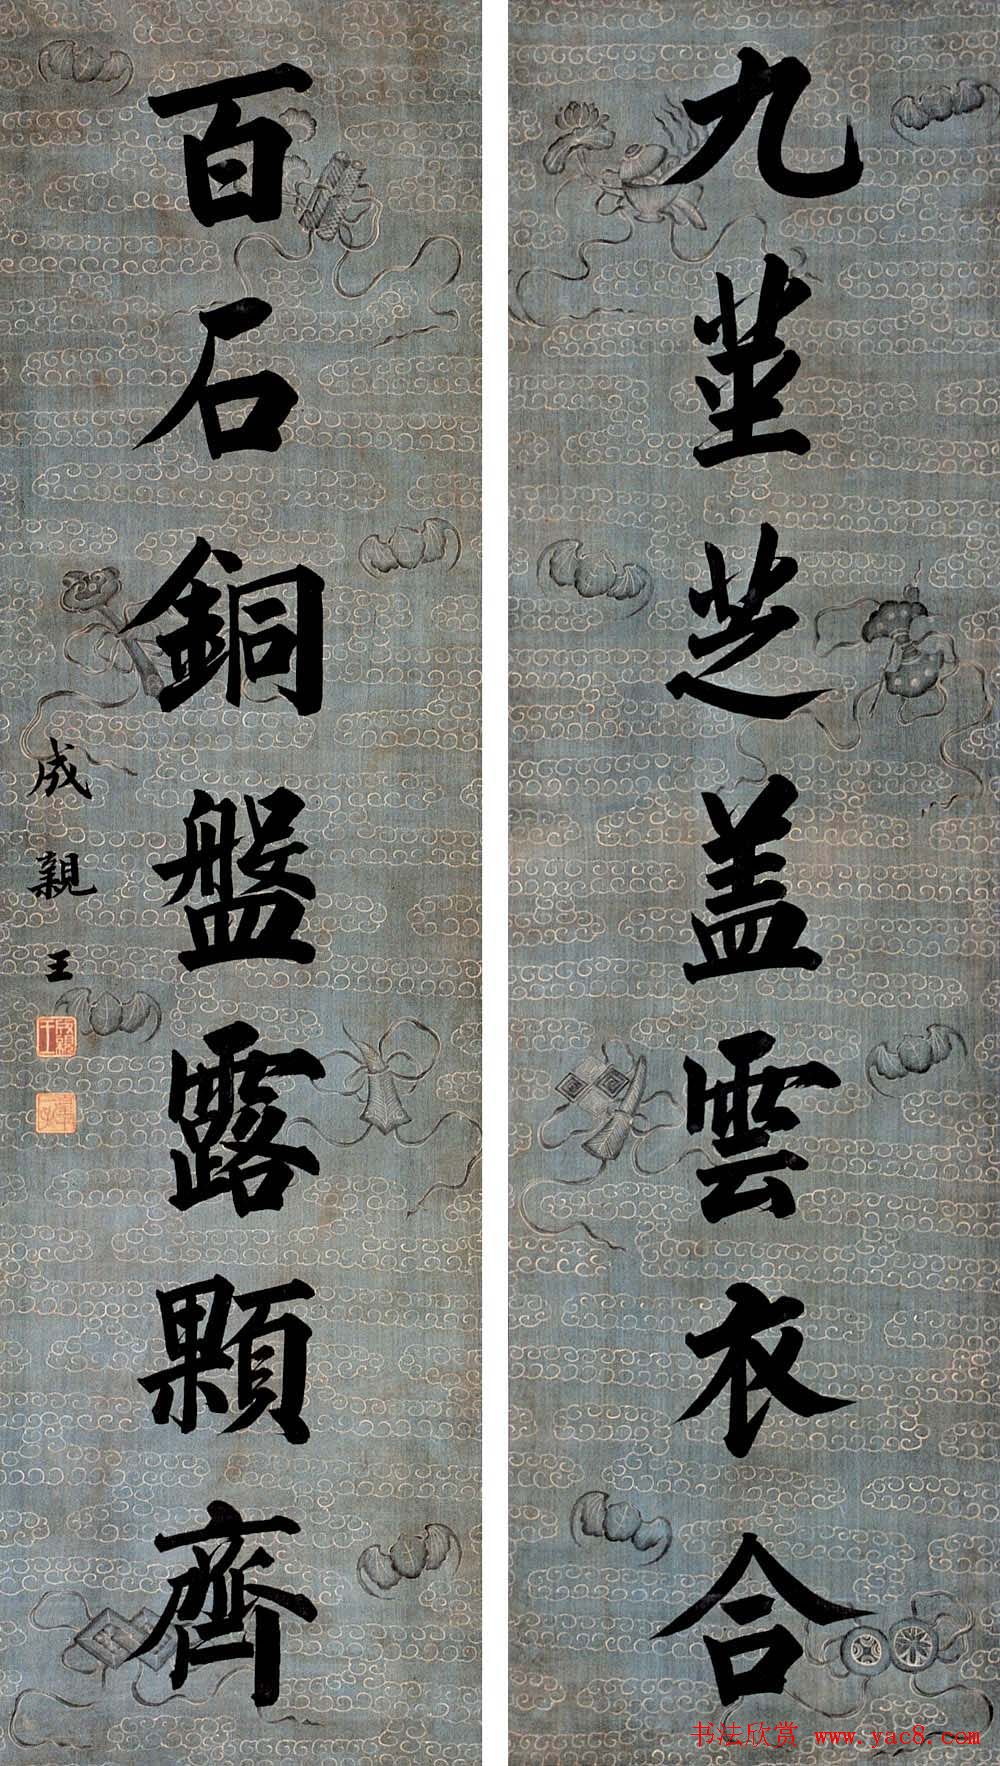 九莖芝盖雲衣合
百石銅盤露顆齊
成親王
成親王
书法欣赏 www.yac8.com